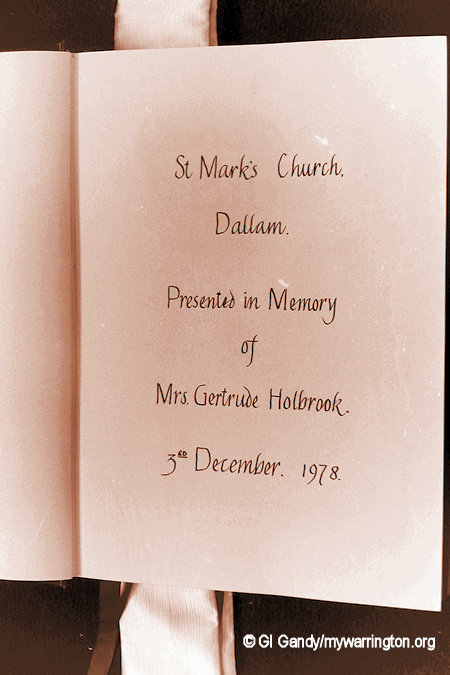 St Mark's Church.
Dallam.
Presented in Memory
of
Mrs. Gertrude Holbrook.
3RD December. 1978.
© GI Gandy/mywarrington.org